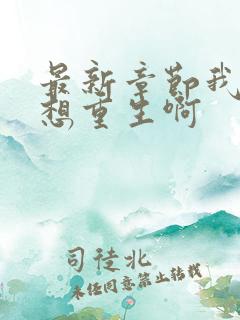 最新章节我
想重生啊
司徒北
未经同意禁止转载